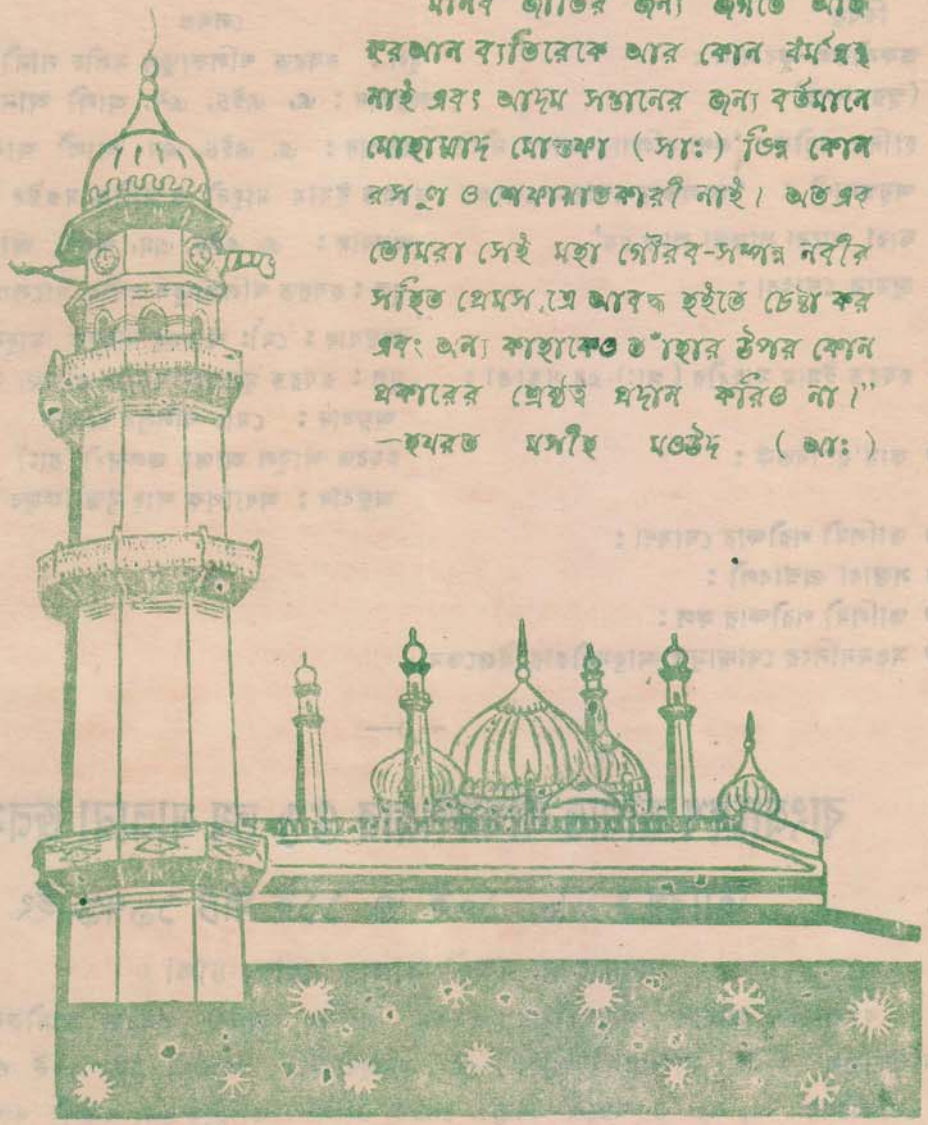 মানব জাতির জন্য জগতে আজ
করআন ব্যতিরেকে আর কোন ধর্মগ্রন্থ
নাই এবং আদম সন্তানের জন্য বর্তমানে
মোহাম্মাদ মোস্তফা (সাঃ) ভিন্ন কোন
রসূল ও শেফায়াতকারী নাই। অতএব
তোমরা সেই মহা গৌরব-সম্পন্ন নবীর
সহিত প্রেমসূত্রে আবদ্ধ হইতে চেষ্টা কর
এবং অন্য কাহাকেও তাঁহার উপর কোন
প্রকারের শ্রেষ্ঠত্ব প্রদান করিও না।"
—হযরত মসীহ মওউদ (আঃ)